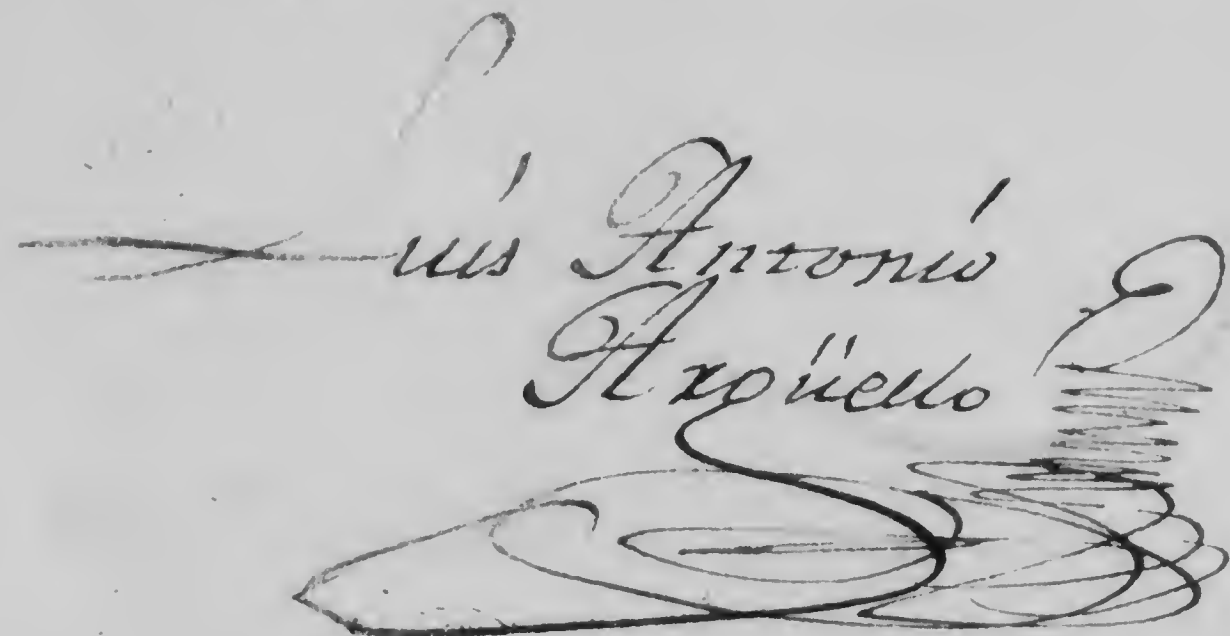 Luis Antonio
Argüello